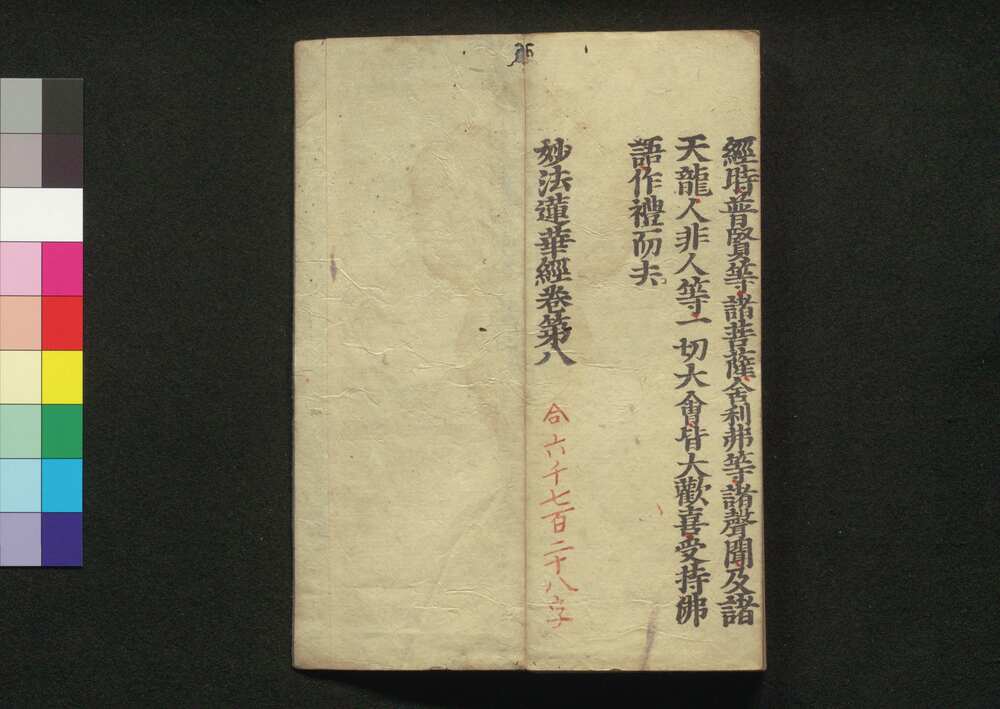 經時普賢等諸菩薩舍利弗等諸聲聞及諸
天龍人非人等一切大會皆大歡喜受持佛
語作禮而去
妙法蓮華經卷第八
合六千七百二十八字